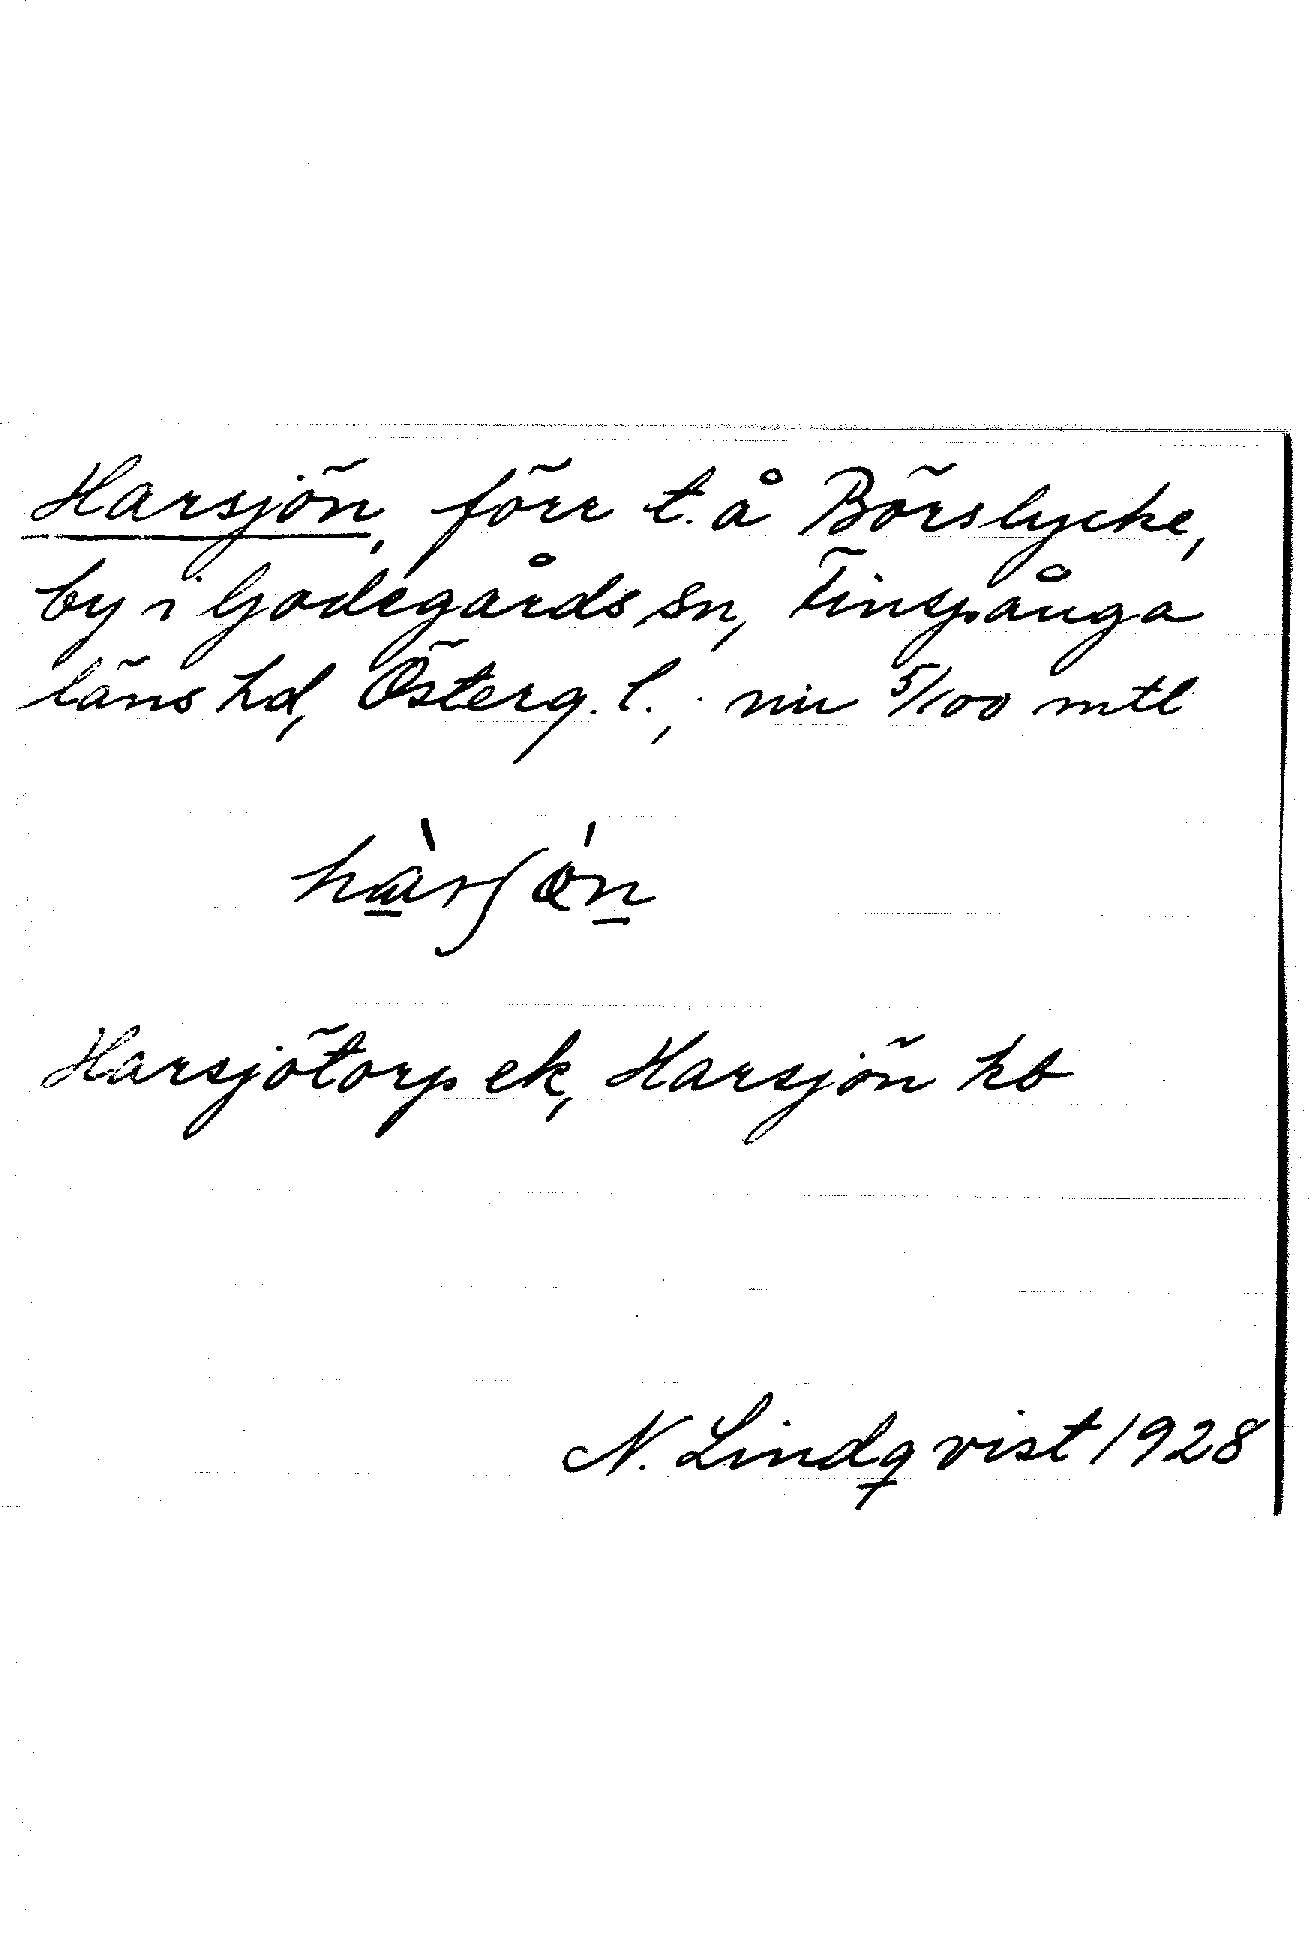 Harsjön, förr t. å Börslycke,
by i Godegårds sn, Finspånga
läns hd, Österg. l.; nu 5/100 mtl
hàrʃøn
Harsjötorp ek, Harsjön hb
N. Lindqvist 1928